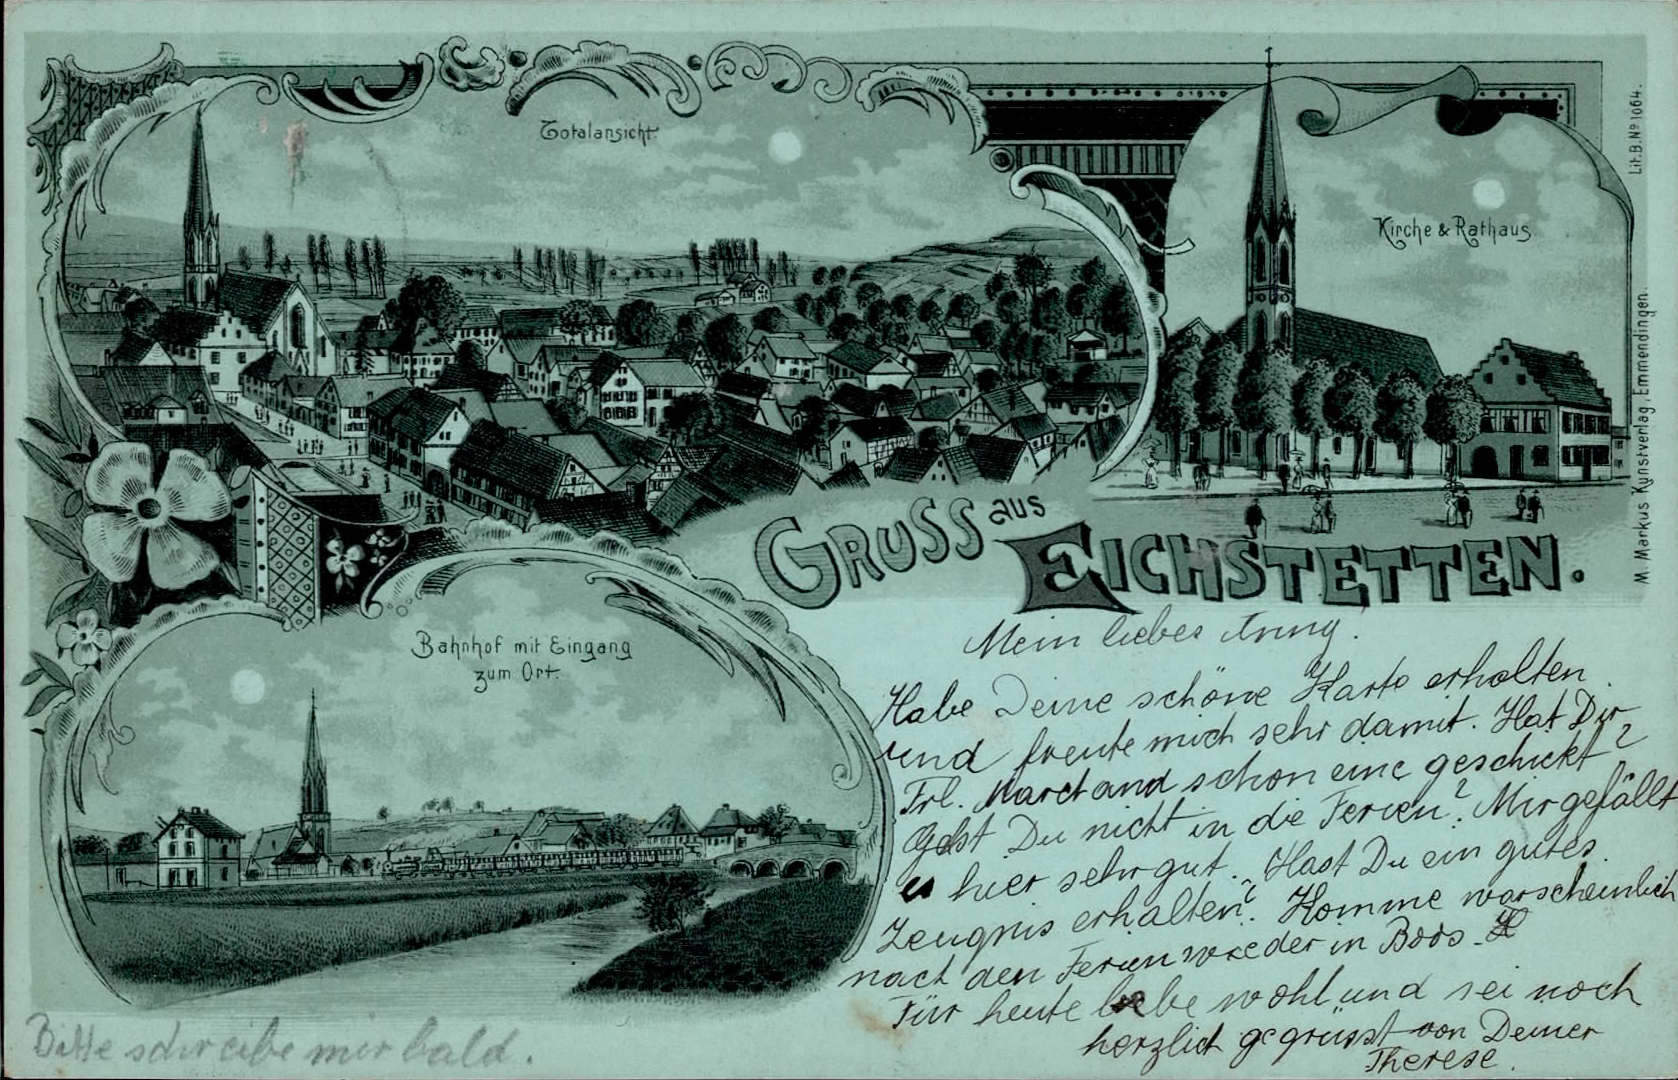 Totalansicht
Kirche & Rathaus
Lit.B.No 1064.
M. Markus Kunstverlag Emmendingen.
GRUSS aus
EICHSTETTEN.
Bahnhof mit Eingang
zum Ort.
Mein liebes
Habe Deine schöne Karte erhalten
und freute mich sehr damit. Hat Dir
Frl. Marctand schon eine geschickt?
Gehst Du nicht in die Ferien? Mir gefällt
es hier sehr gut. Hast Du ein gutes
Zeugnis erhalten? Komme warscheinlich
nach den Ferien wieder in Boos.
Für heute lebe wohl und sei noch
herzlich gegrüsst von Deiner
Therese.
Bitte schreibe mir bald.